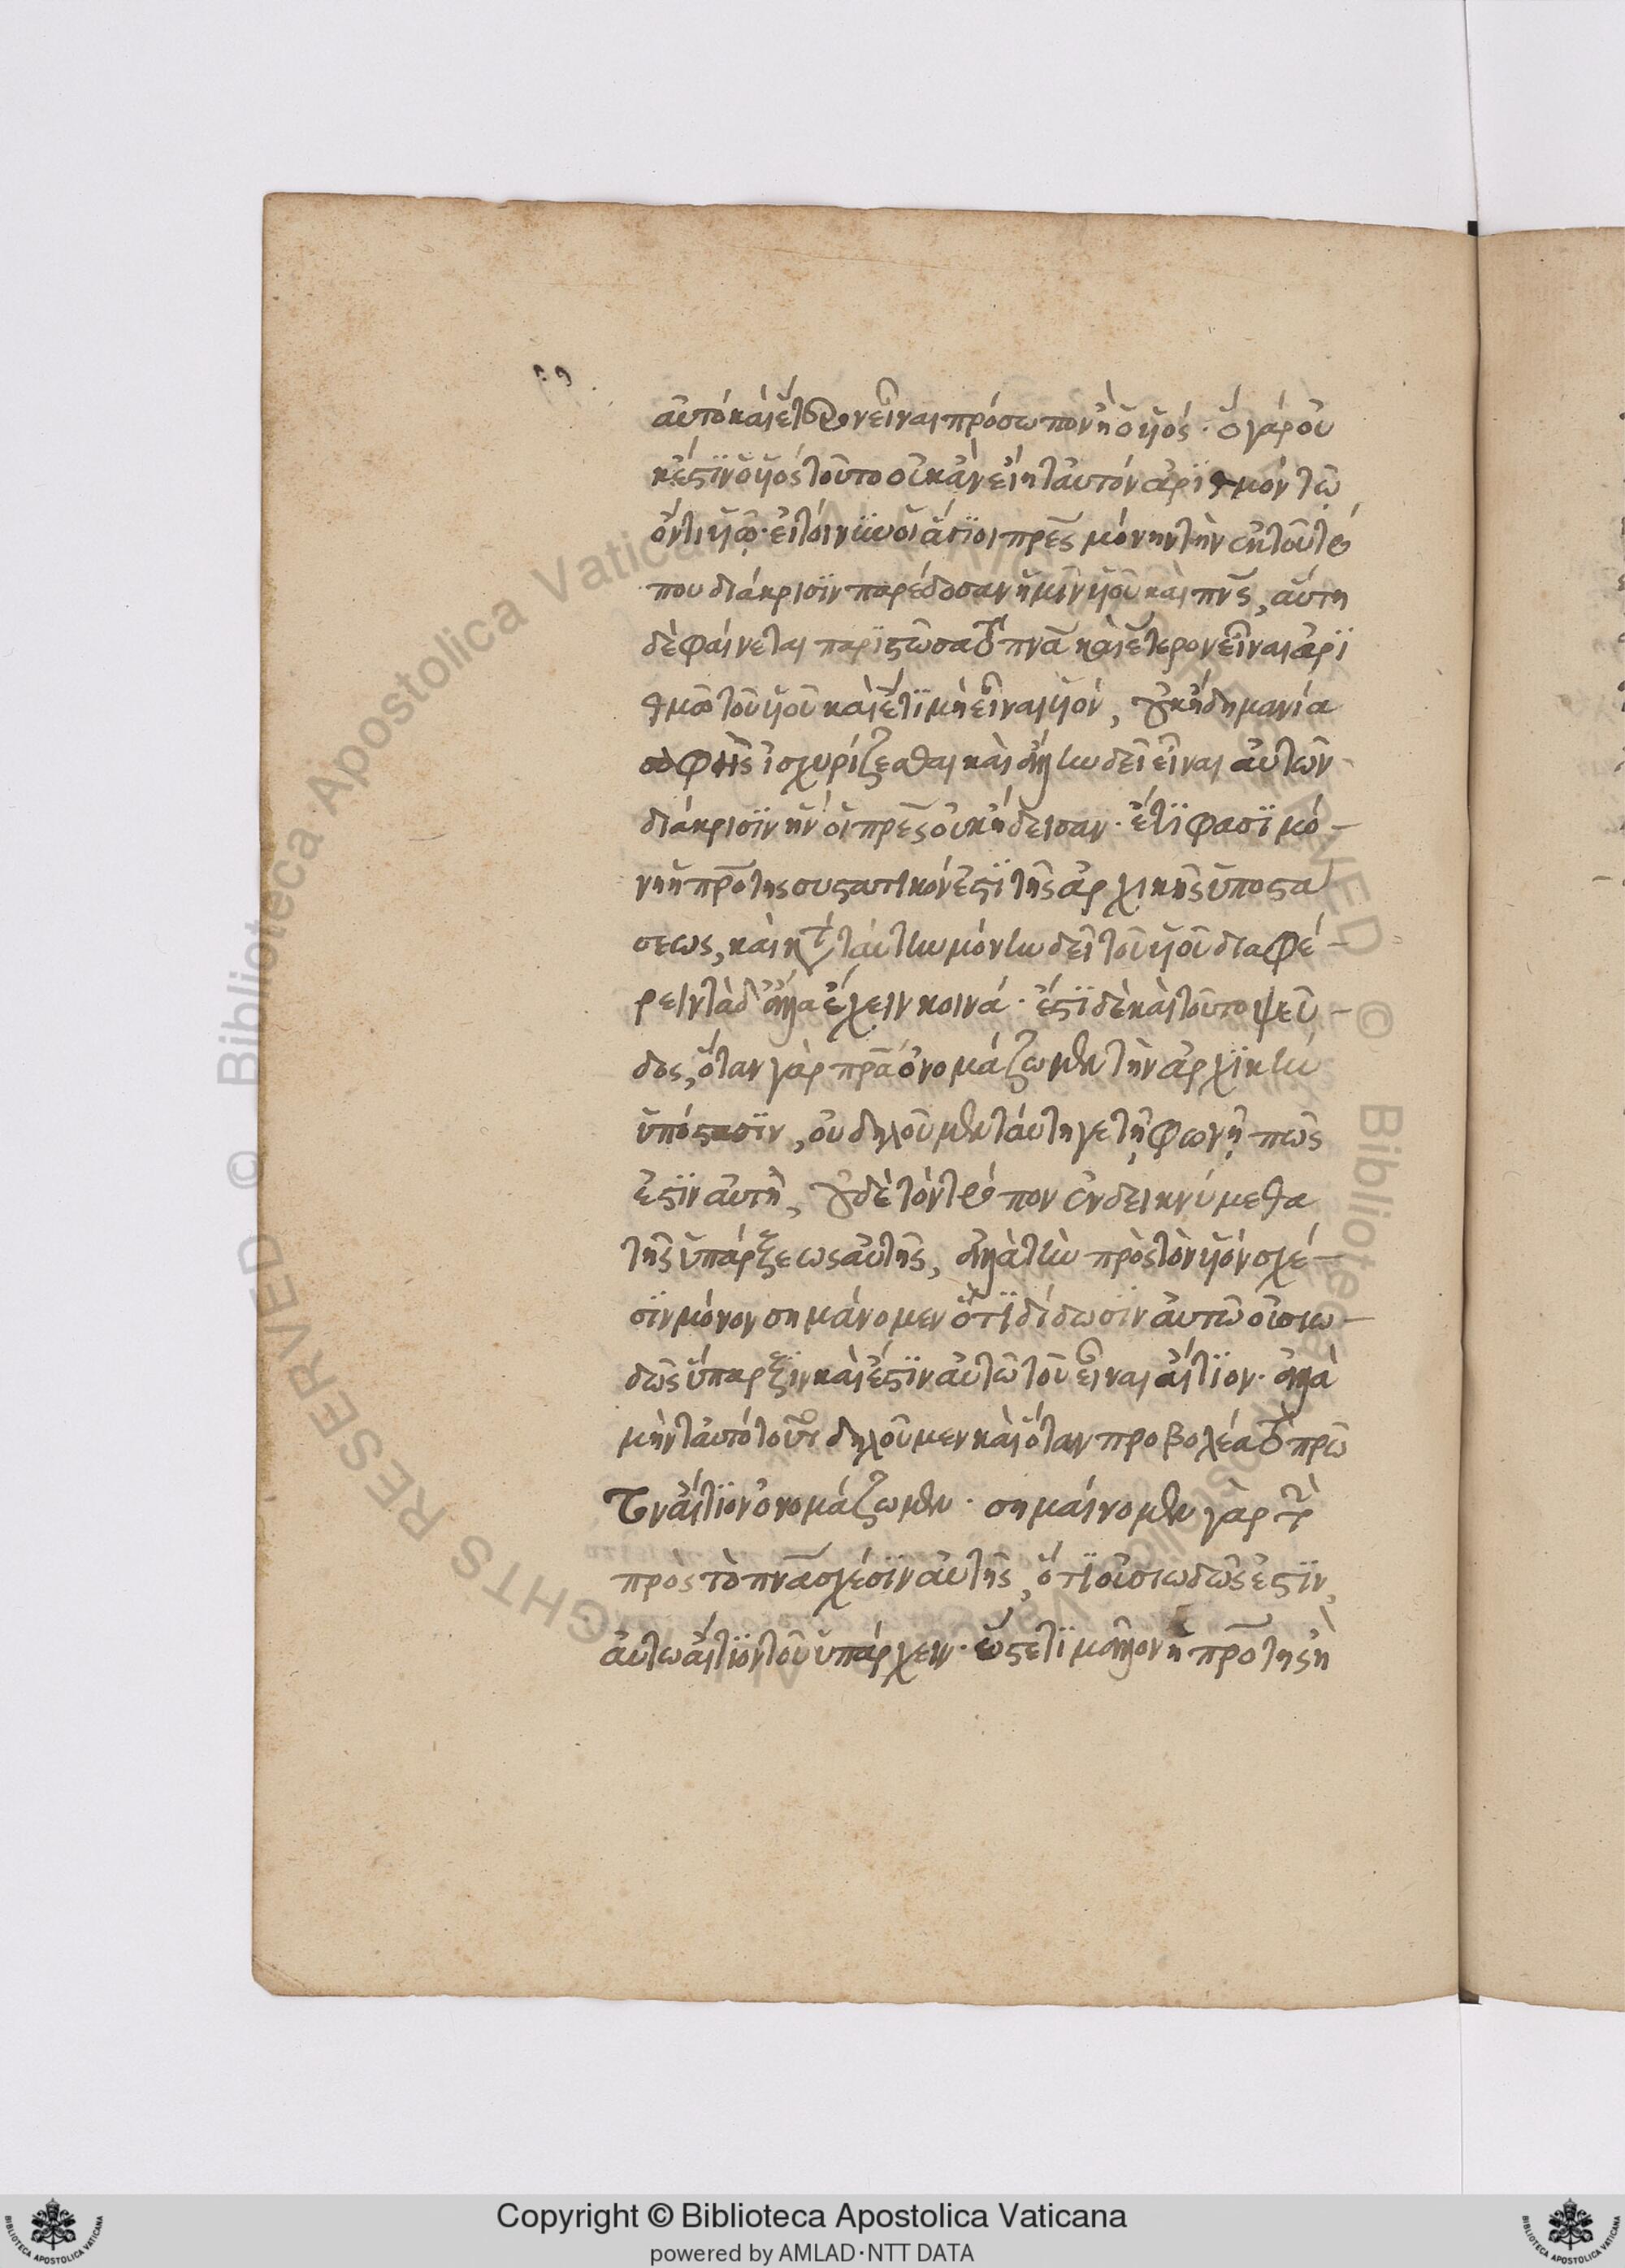 αὐτό καὶ ἕτερον εἶναι πρόσωπον ἢ ὁ υἱός · ὃ γάρ οὐ
κέστιν ὁ υἱός τοῦτο οὐκ ἂν εἴη ταυτόν ἀριθμόν τῷ
ὄντι υἱῷ · εἰ τοίνυν οἱ ἅγιοι πρες μόνην τὴν ἐκ τοῦ τρό
που διάκρισιν παρέδοσαν ἡμῖν υἱοῦ καὶ πνς, αὕτη
δὲ φαίνεται παριστῶσα τὸ πνα καὶ ἕτερον εἶναι ἀρι
θμῷ τοῦ υἱοῦ καὶ ἔτι μὴ εἶναι υἱόν, οὐκ ἤδη μανία
σαφὴς ἰσχυρίζεσθαι καὶ ἄλλην δεῖ εἶναι αὐτῶν
διάκρισιν ἣν οἱ πρες οὐκ ἤδεισαν · ἔτι φασὶ μό-
νη ἡ πρότης συστατικόν ἐστι τῆς ἀρχικῆς ὑποστα
σεως, καὶ κατὰ ταύτην μόνην δεῖ τοῦ υἱοῦ διαφέ-
ρειν τὰ δ' ἄλλα ἔχειν κοινά · ἔστι δὲ καὶ τοῦτο ψεῦ-
δος, ὅταν γὰρ πρα ὀνομάζωμεν τὴν ἀρχικὴν
ὑπόστασιν, οὐ δηλοῦμεν ταύτη γε τῇ φωνῇ πῶς
ἐστὶν αὐτὴ, οὐδὲ τὸν τρόπον ἐνδεικνύμεθα
τῆς ὑπάρξεως αὐτῆς, ἀλλὰ τὴν πρὸς τὸν υἱόν σχέ-
σιν μόνον σημάνομεν ὅτι δίδωσιν αὐτῷ οὐσιω-
δῶς ὕπαρξιν καὶ ἔστιν αὐτῷ τοῦ εἶναι αἴτιον · ἀλλὰ
μὴν ταυτό τοῦτο δηλοῦμεν καὶ ὅταν προβολέα τὸ πρῶ
τον αἴτιον ὀνομάζωμεν · σημαίνομεν γὰρ τὴν
πρὸς τὸ πνα σχέσιν αὐτῆς, ὅτι οὐσιωδῶς ἐστιν
αὐτῷ αἴτιον τοῦ ὑπάρχειν · ὥστε τί μᾶλλον ἡ πρότης ἢ
Copyright © Biblioteca Apostolica Vaticana
powered by AMLAD·NTT DATA